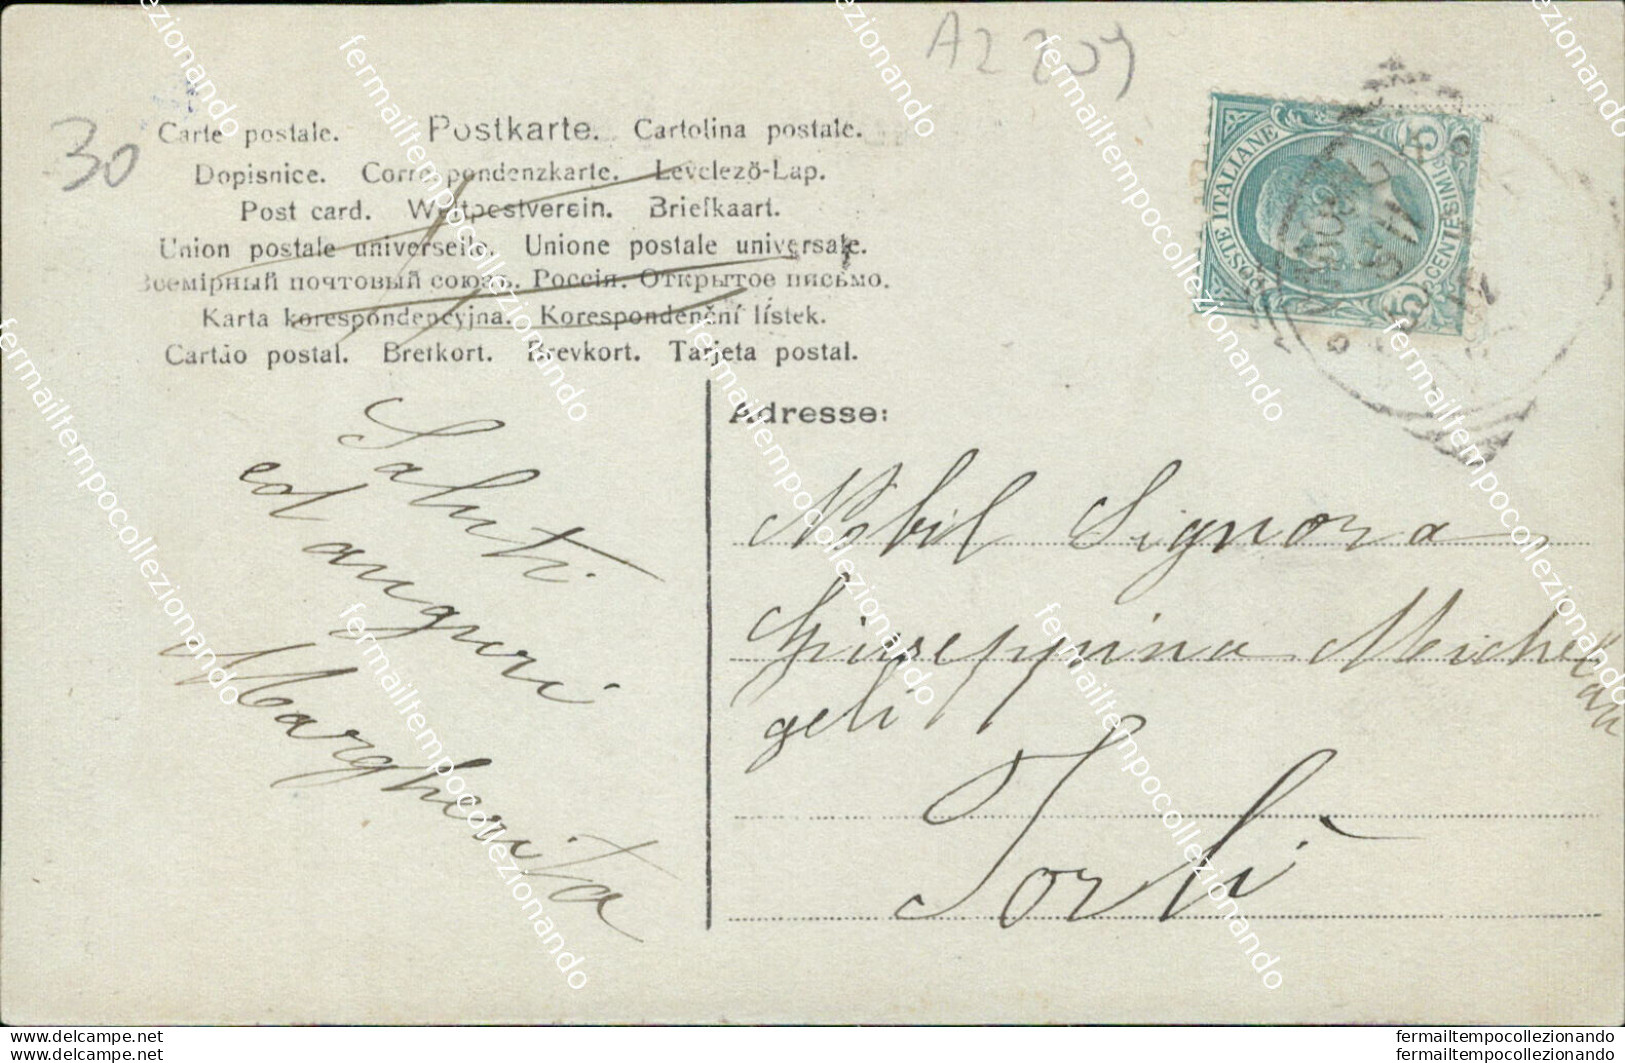 A2 209
30
Carte postale. Postkarte. Cartolina postale.
Dopisnice. Correspondenzkarte. Levelező-Lap.
Post card. Weltpostverein. Briefkaart.
Union postale universelle. Unione postale universale.
Всемірный почтовый союзъ. Россія. Открытое письмо.
Karta korespondencyjna. Korespondenční lístek.
Cartão postal. Brefkort. Brevkort. Tarjeta postal.
POSTE ITALIANE
5 CENTESIMI 5
Saluti
ed auguri
Margherita
Adresse:
Nobil Signora
Giuseppina Michel
an
geli
Forlì
fermailtempocollezionando
fermailtempocollezionando
fermailtempocollezionando
fermailtempocollezionando